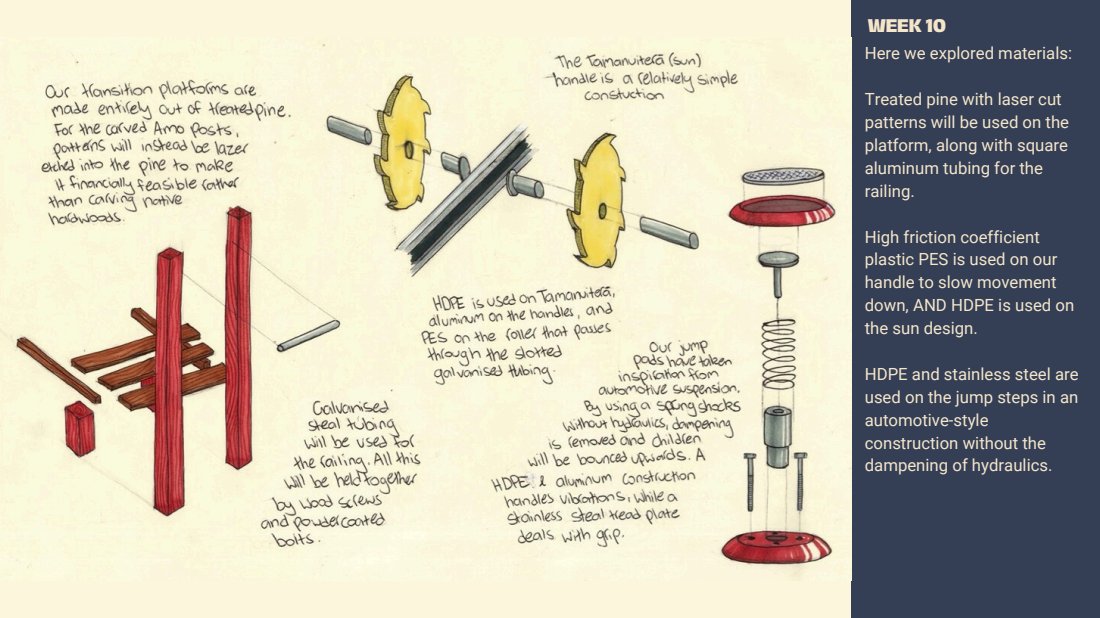 Our transition platforms are
made entirely out of treated pine.
For the carved Amo Posts,
patterns will instead be lazer
etched into the pine to make
it financially feasible rather
than carving native
hardwoods.
The Tamanuiterā (sun)
handle is a relatively simple
constuction
HDPE is used on Tamanuiterā,
aluminum on the handles, and
PES on the roller that passes
through the slotted
galvanised tubing.
Galvanised
steal tubing
will be used for
the railing. All this
will be held together
by wood screws
and powdercoated
bolts.
Our jump
pads have taken
inspiration from
automotive suspension.
By using a spring shocks
without hydraulics, dampening
is removed and children
will be bounced upwards. A
HDPE & aluminum construction
handles vibrations, while a
stainless steal tread plate
deals with grip.
WEEK 10
Here we explored materials:
Treated pine with laser cut
patterns will be used on the
platform, along with square
aluminum tubing for the
railing.
High friction coefficient
plastic PES is used on our
handle to slow movement
down, AND HDPE is used on
the sun design.
HDPE and stainless steel are
used on the jump steps in an
automotive-style
construction without the
dampening of hydraulics.